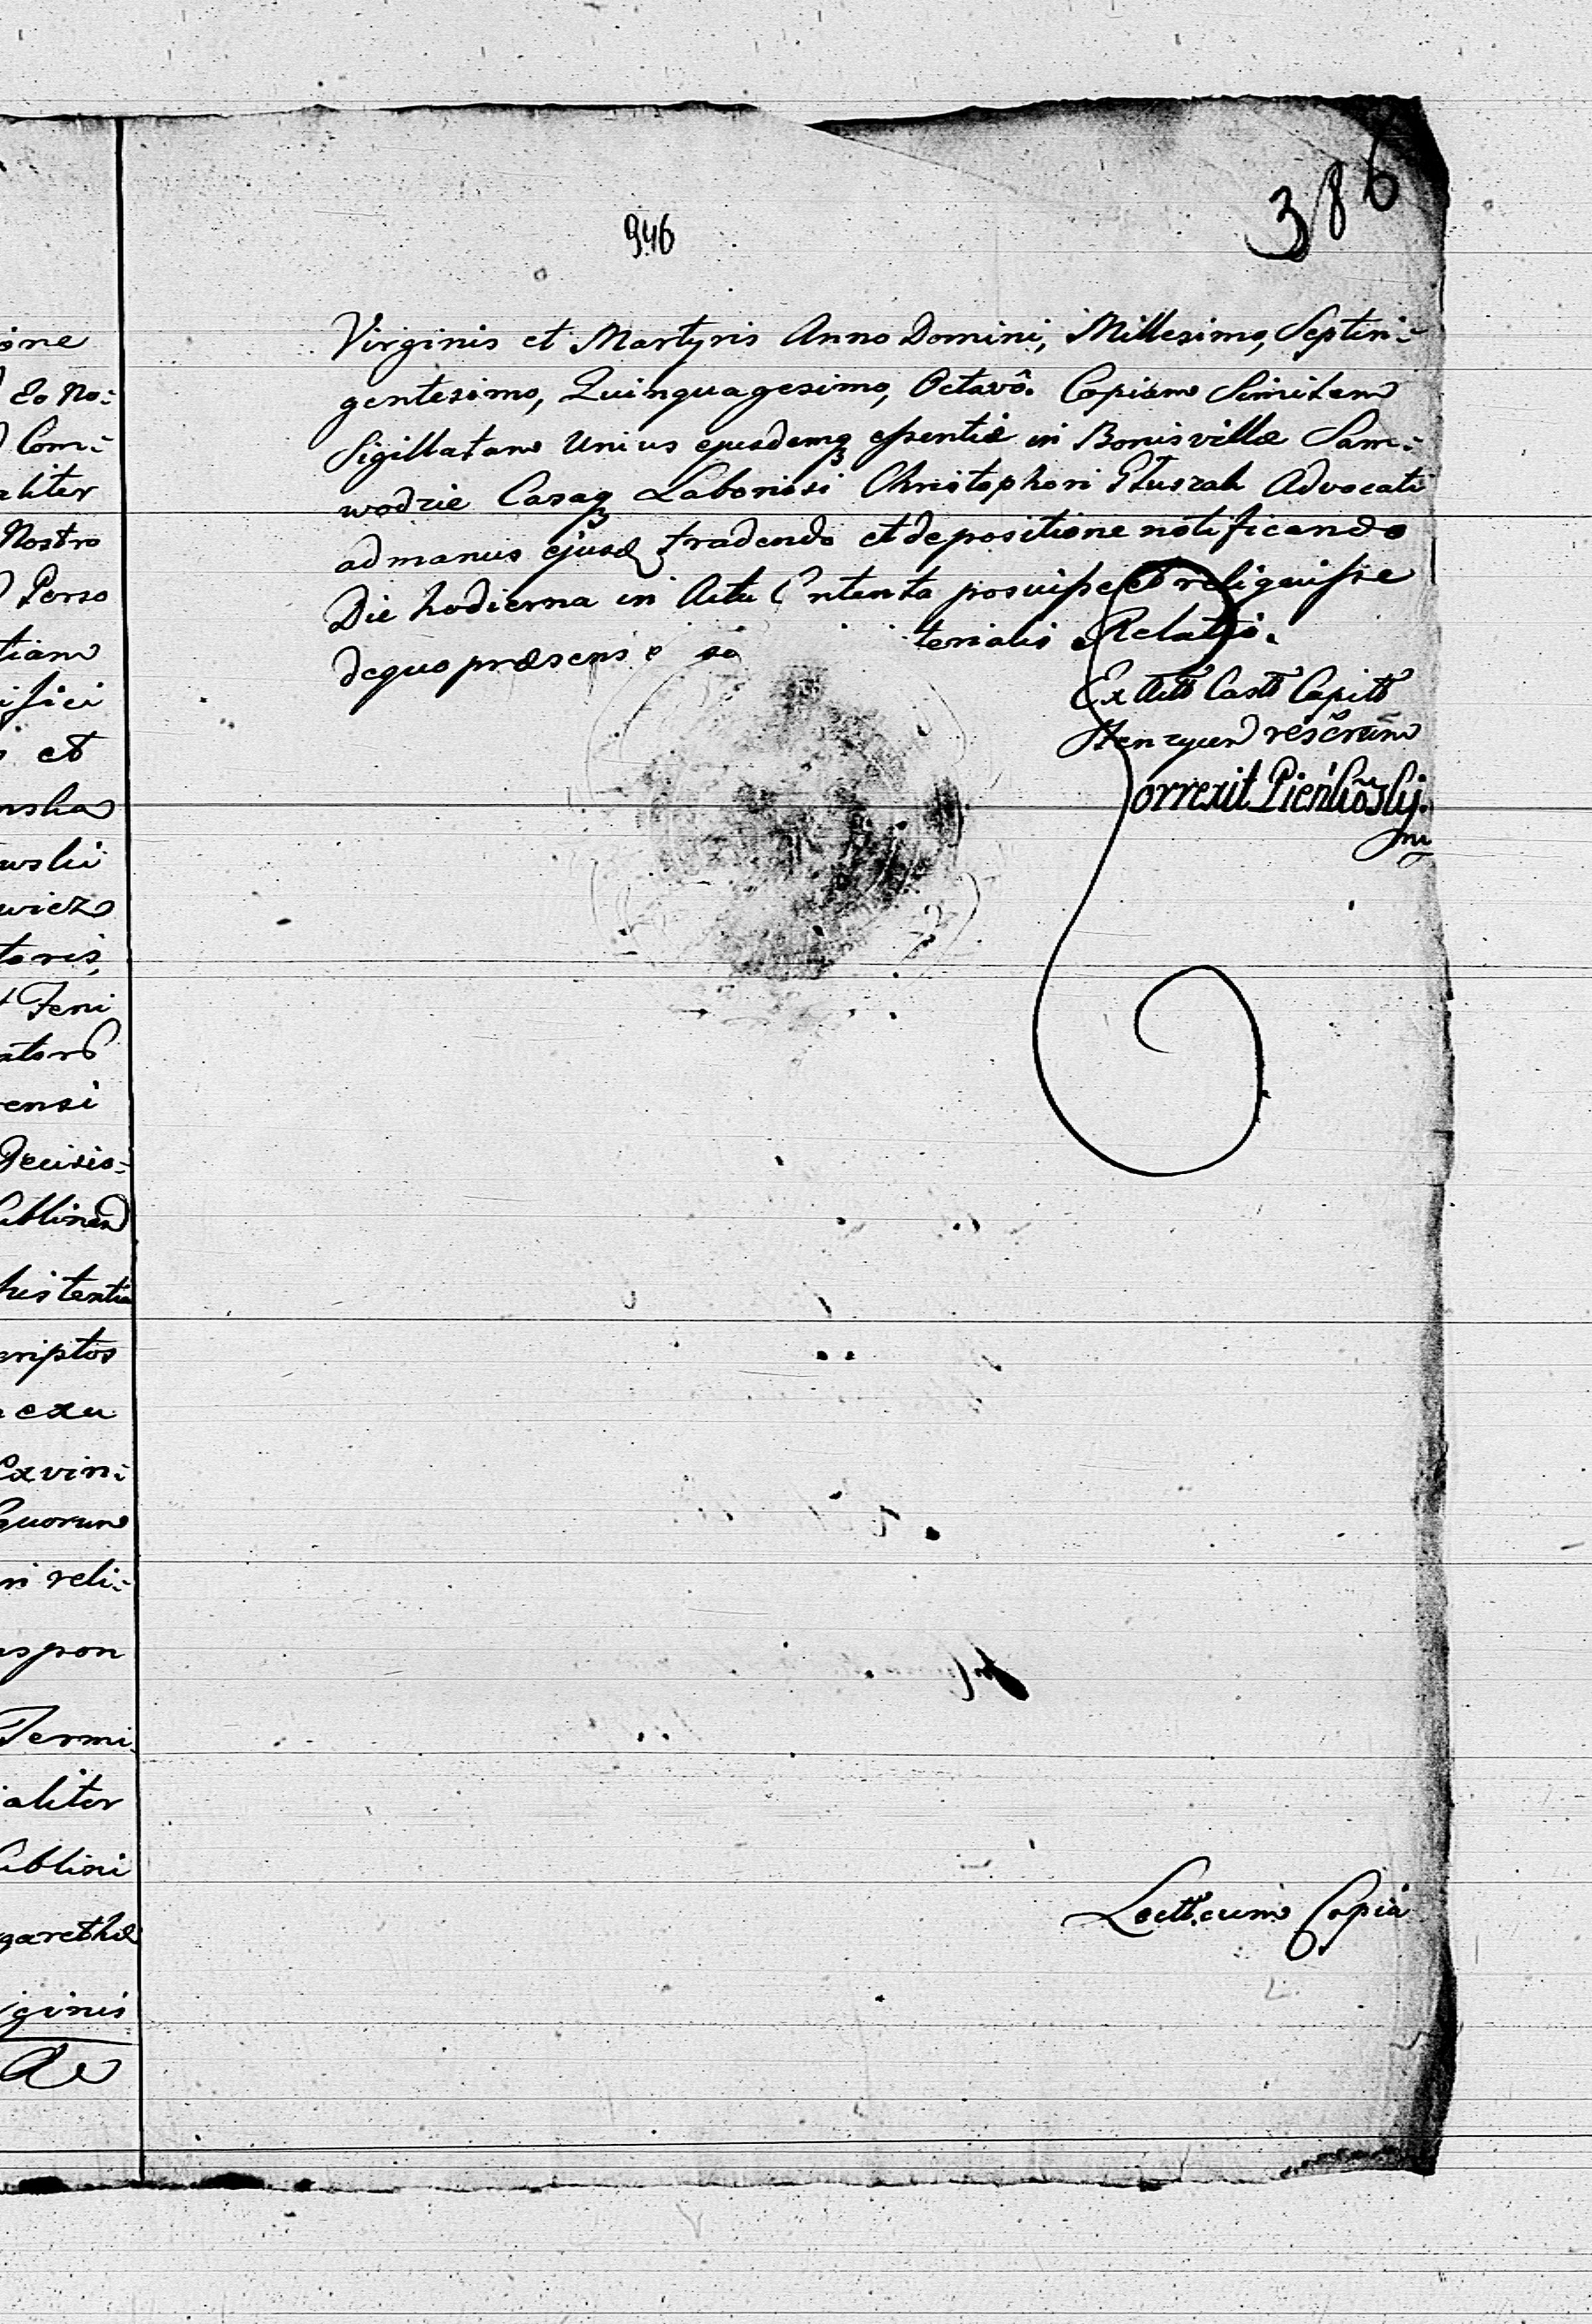 946
386
Virginis et Martyris Anno Domini, Millesimo, Septin:
gentesimo, Quinquagesimo, Octavô. Copiam Similem
Sigillatam Unius ejusdemq3 essentiæ in Bonis villæ Sam:
wodzie Casaq3 Laboriosi Christophori Advocati
ad manus ejusd tradendo et depositione notificando
Die hodierna in Actu Contenta posuisse et reliquisse
de quo præsens terialis Relatio.
Ex Actis Castr Capit
rescrum
Correxit
mp
Lectt. cum Copia
one
Eo No:
Com:
aliter
Nostro
Perso
tiam
ifici
et
nska
wski
wicz
toris,
Feni
ators
ensi
Decisio:
Lublinen
his tentia
criptos
exu
Exvin:
quorum
n reli:
spon
Termi
aliter
Lublini
garethæ
ginis